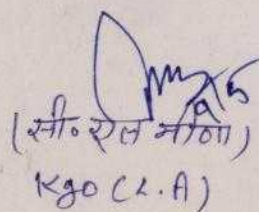 (सी॰ एल मीणा)
Kgo (L.A)